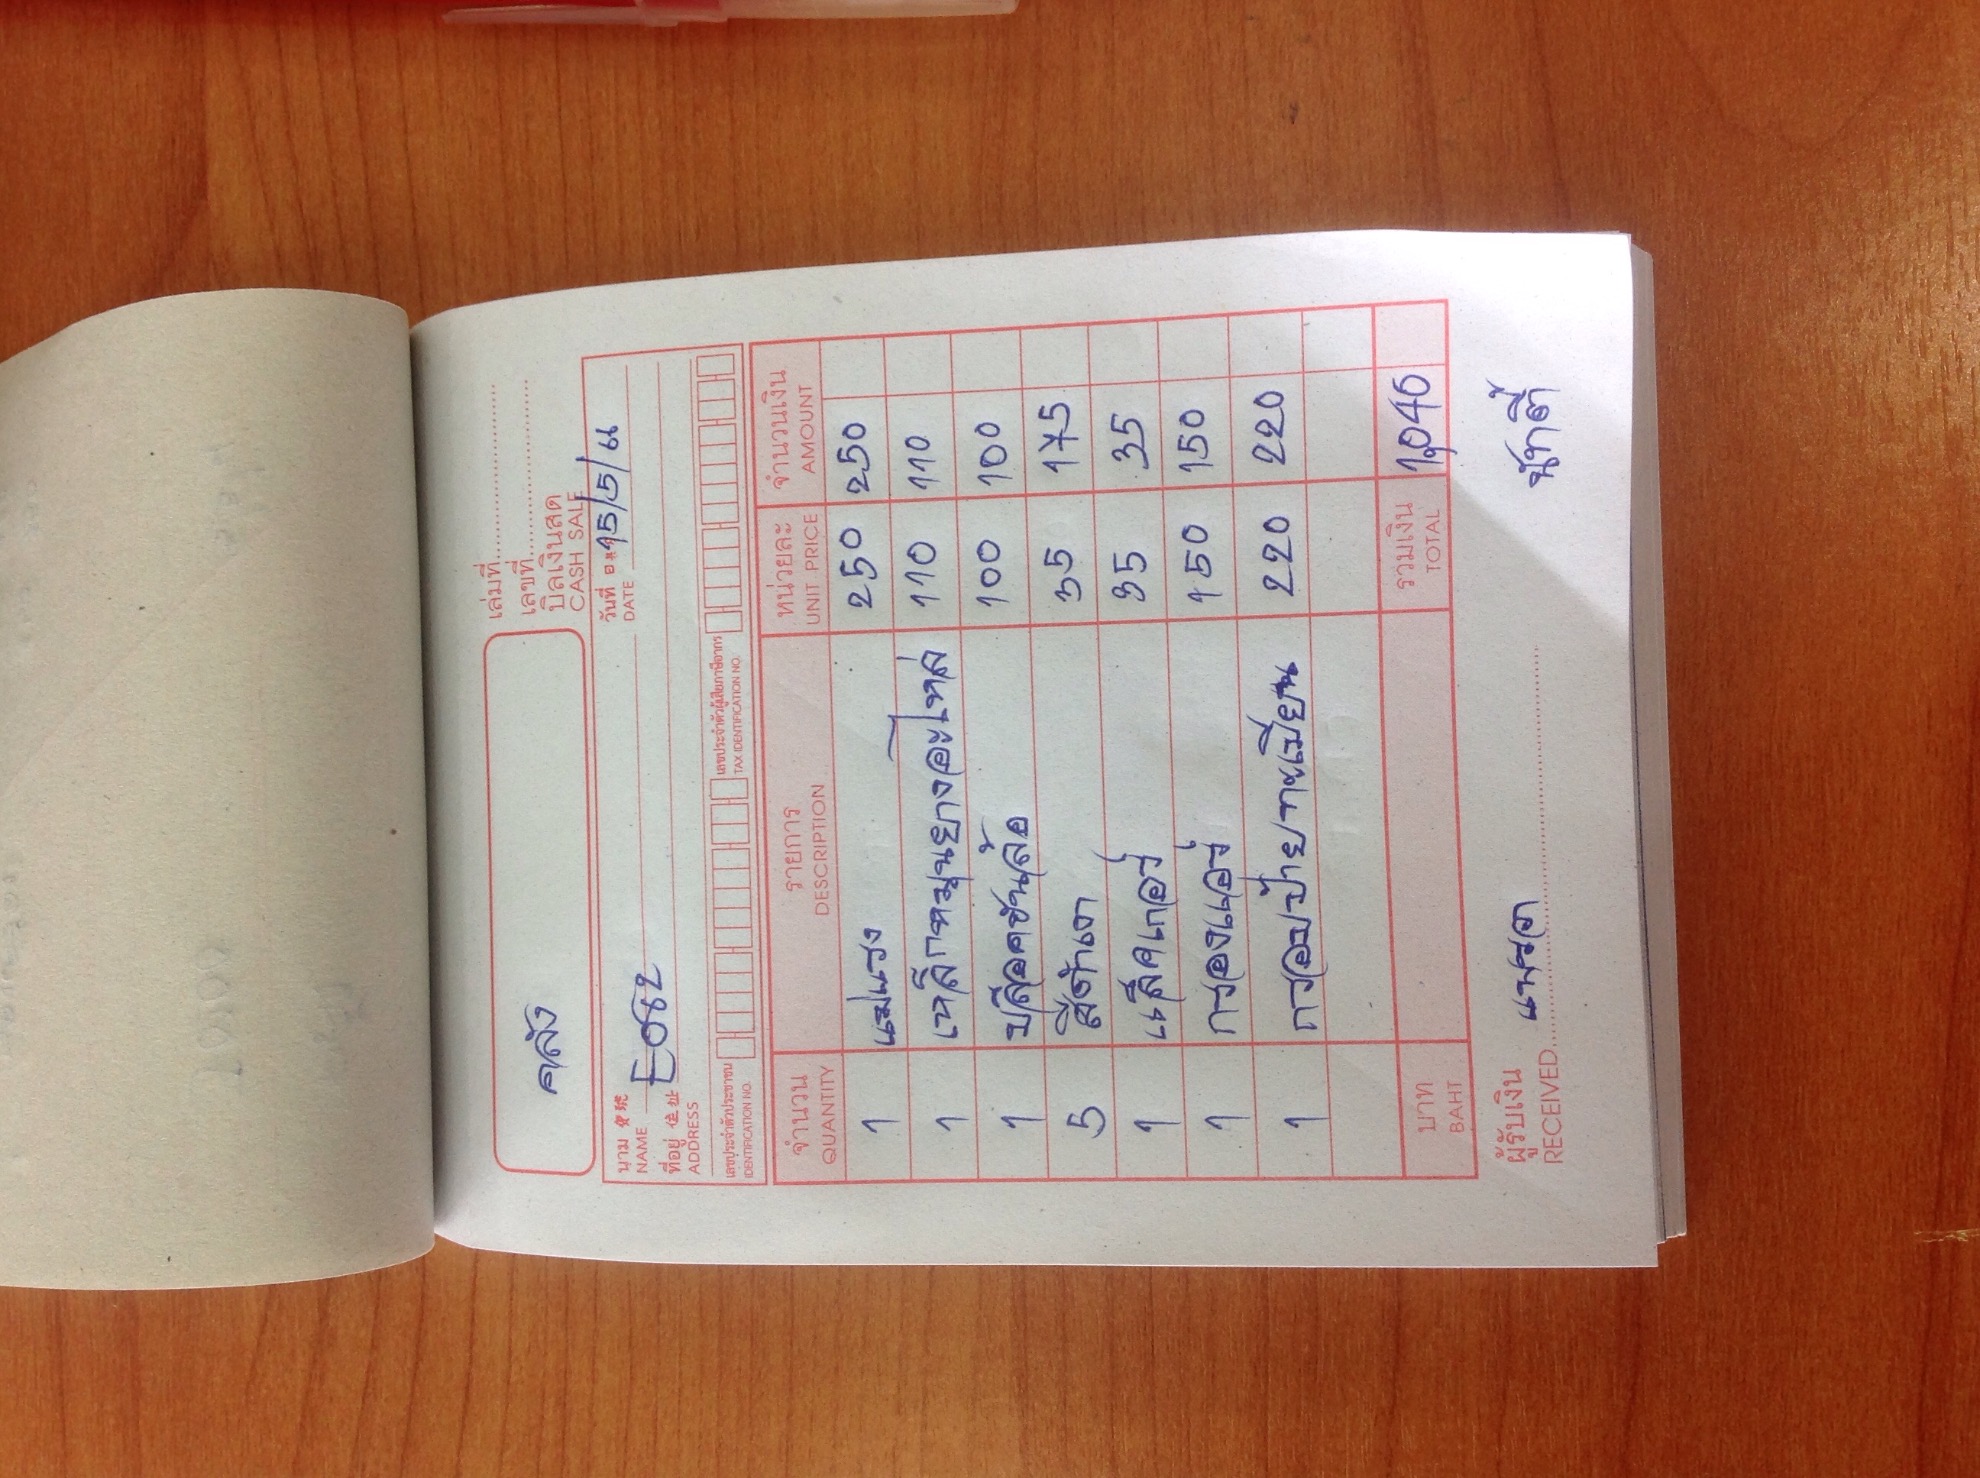 เล่มที่
เลขที่
คลัง
บิลเงินสด
CASH SALE
นาม
NAME E082
วันที่ 15/5/61
DATE
ที่อยู่ 住址
ADDRESS
เลขประจำตัวประชาชน
IDENTIFICATION NO.
เลขประจำตัวผู้เสียภาษีอากร
TAX IDENTIFICATION NO.
จำนวน รายการ หน่วยละ จำนวนเงิน
QUANTITY DESCRIPTION UNIT PRICE AMOUNT
1 แม่แรง 250 250
1 เหล็กหมุนยางอะไหล่ 110 110
1 บล็อคขันล้อ 100 100
5 สีดำเงา 35 175
1 แล็คเกอร์ 35 35
1 กรองแอร์ 150 150
1 กรอบป้ายทะเบียน 220 220
บาท รวมเงิน 1,040
BAHT TOTAL
ผู้รับเงิน
RECEIVED